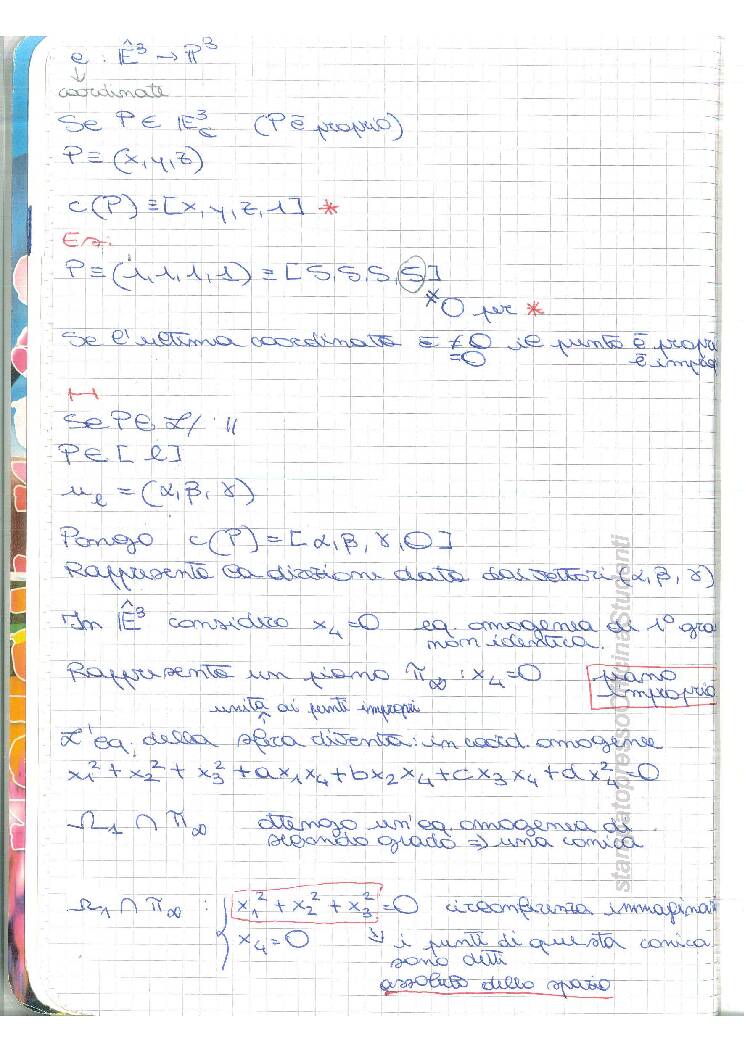 c : Ê³ → P³
↓
coordinate
Se P ∈ E³_C (P è proprio)
P ≡ (x, y, z)
c(P) ≡ [x, y, z, 1] *
Es.
P ≡ (1, 1, 1, 1) ≡ [5, 5, 5, 5]
≠0 per *
Se l'ultima coordinata è ≠0 il punto è propri
=0 è improp
Se P ∈ L/ //
P ∈ [l]
u_l = (α, β, γ)
Pongo c(P) = [α, β, γ, 0]
Rappresenta la direzione data dai vettori (α, β, γ)
In Ê³ considero x₄=0 eq. omogenea di 1° gra
non identica.
Rappresenta un piano π∞ : x₄=0 piano
improprio
unita ai punti impropri
L'eq. della sfera diventa: in coord. omogenee
x₁² + x₂² + x₃² + ax₁x₄ + bx₂x₄ + cx₃x₄ + dx₄² = 0
Ω₁ ∩ π∞ ottengo un'eq. omogenea di
secondo grado ⇒ una conica
Ω₁ ∩ π∞ : { x₁² + x₂² + x₃² = 0 circonferenza immaginar
x₄ = 0 ⇓ i punti di questa conica
sono detti
assoluto dello spazio
stampatopressoOfficinaStudenti